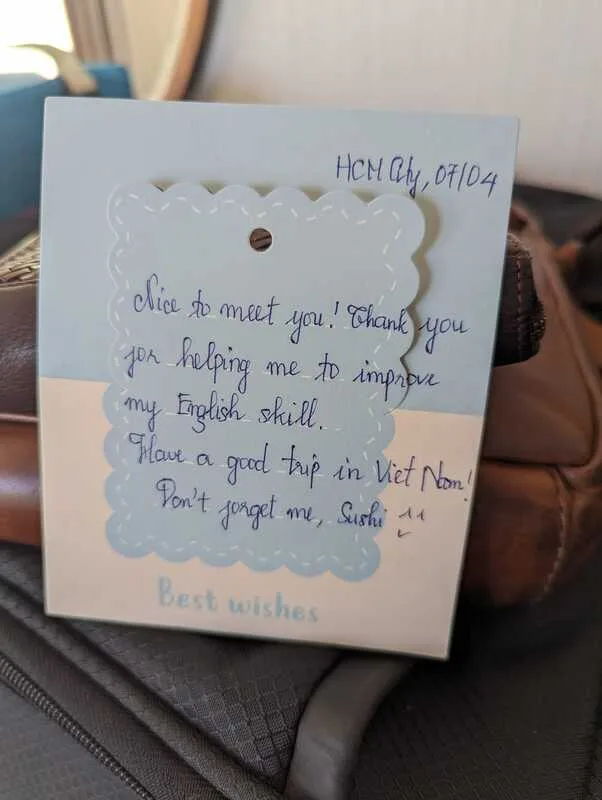 HCM City, 07/04
Nice to meet you! Thank you
for helping me to improve
my English skill.
Have a good trip in Viet Nam!
Don't forget me, Sushi ^^
Best wishes